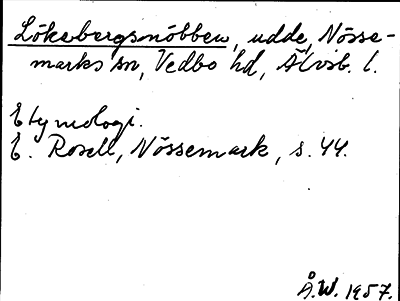 Lökebergsnöbben, udde, Nösse-
marks sn, Vedbo hd, Älvsb. l.
Etymologi.
E. Rosell, Nössemark, s. 44.
Å.W. 1957.